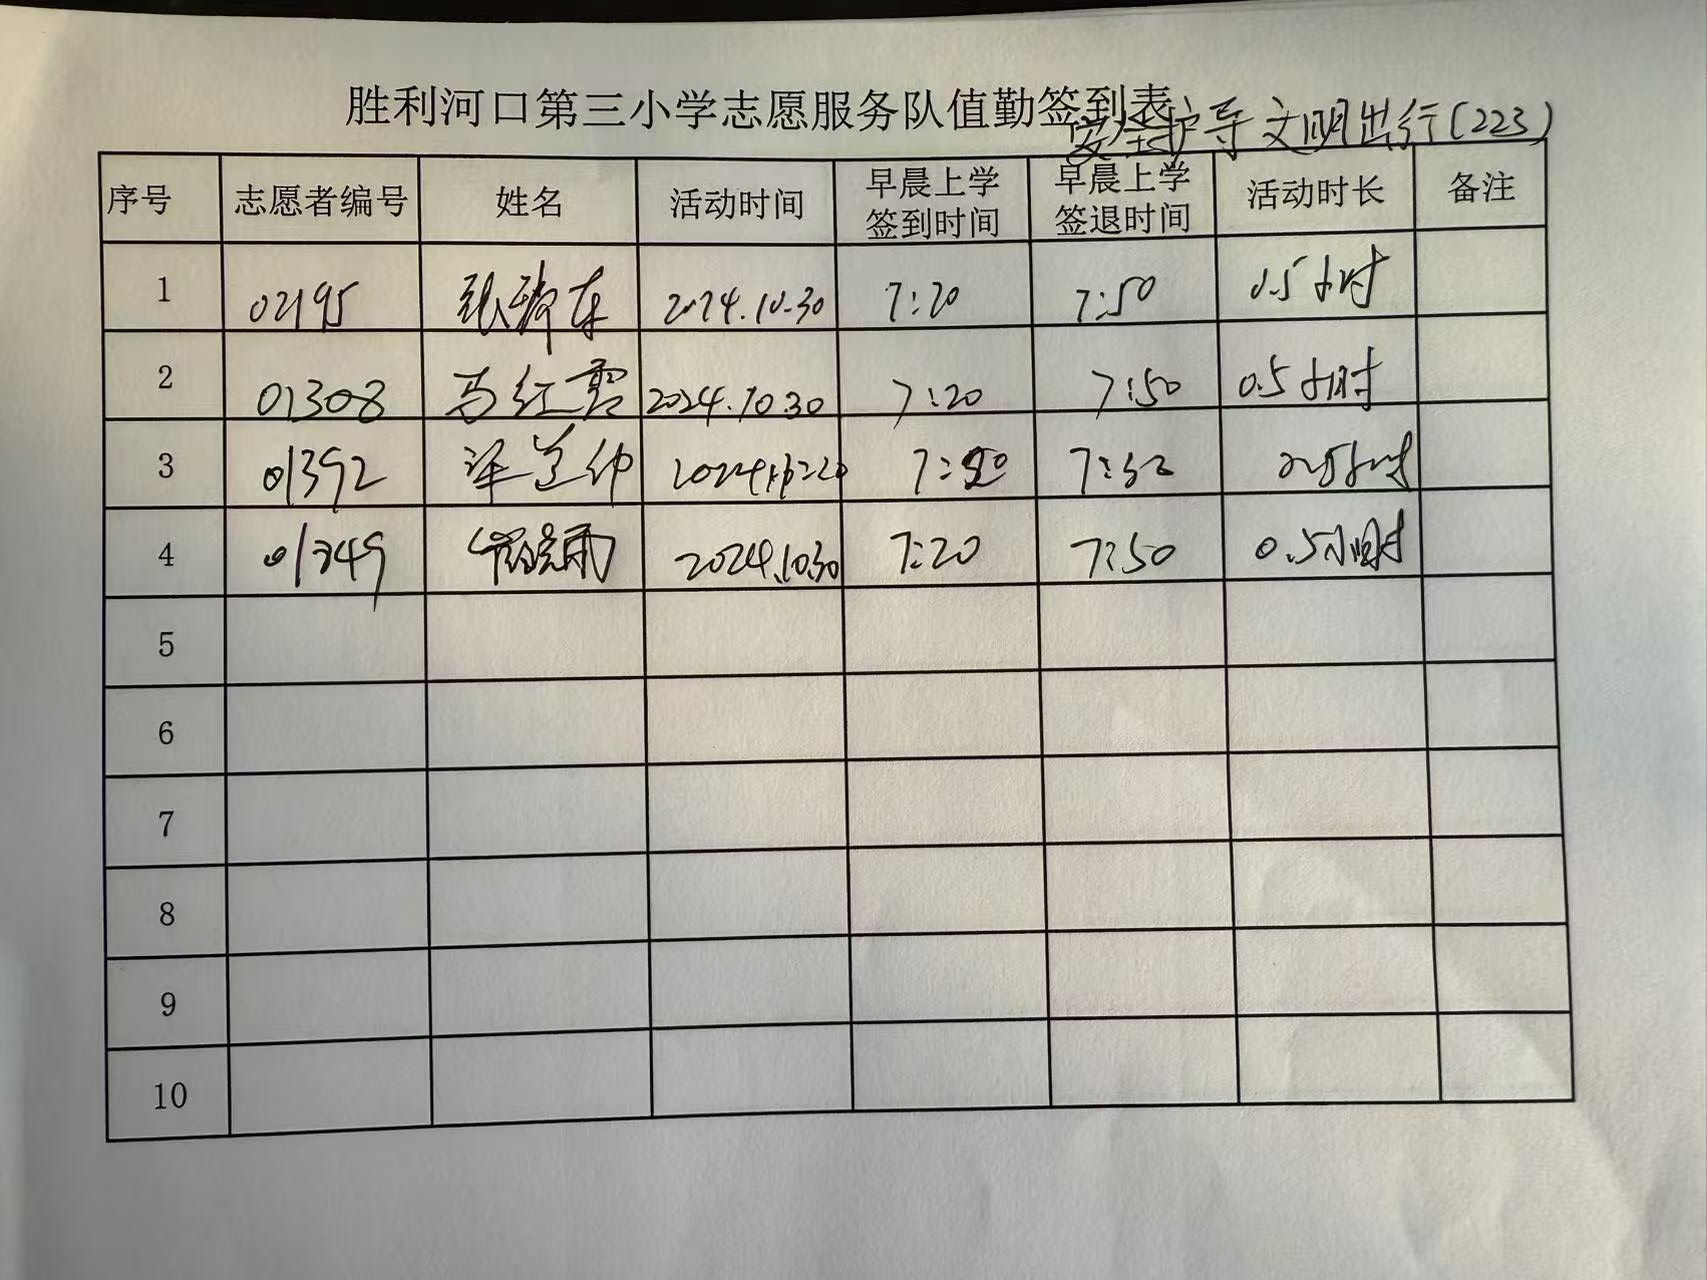 胜利河口第三小学志愿服务队值勤签到表
安全护导 文明出行(223)
序号 志愿者编号 姓名 活动时间 早晨上学签到时间 早晨上学签退时间 活动时长 备注
1 02195 张 东 2024.10.30 7:20 7:50 0.5小时
2 01308 马红霞 2024.10.30 7:20 7:50 0.5小时
3 01392 7:20 7:50 0.5小时
4 01349 2024.10.30 7:20 7:50 0.5小时
5
6
7
8
9
10